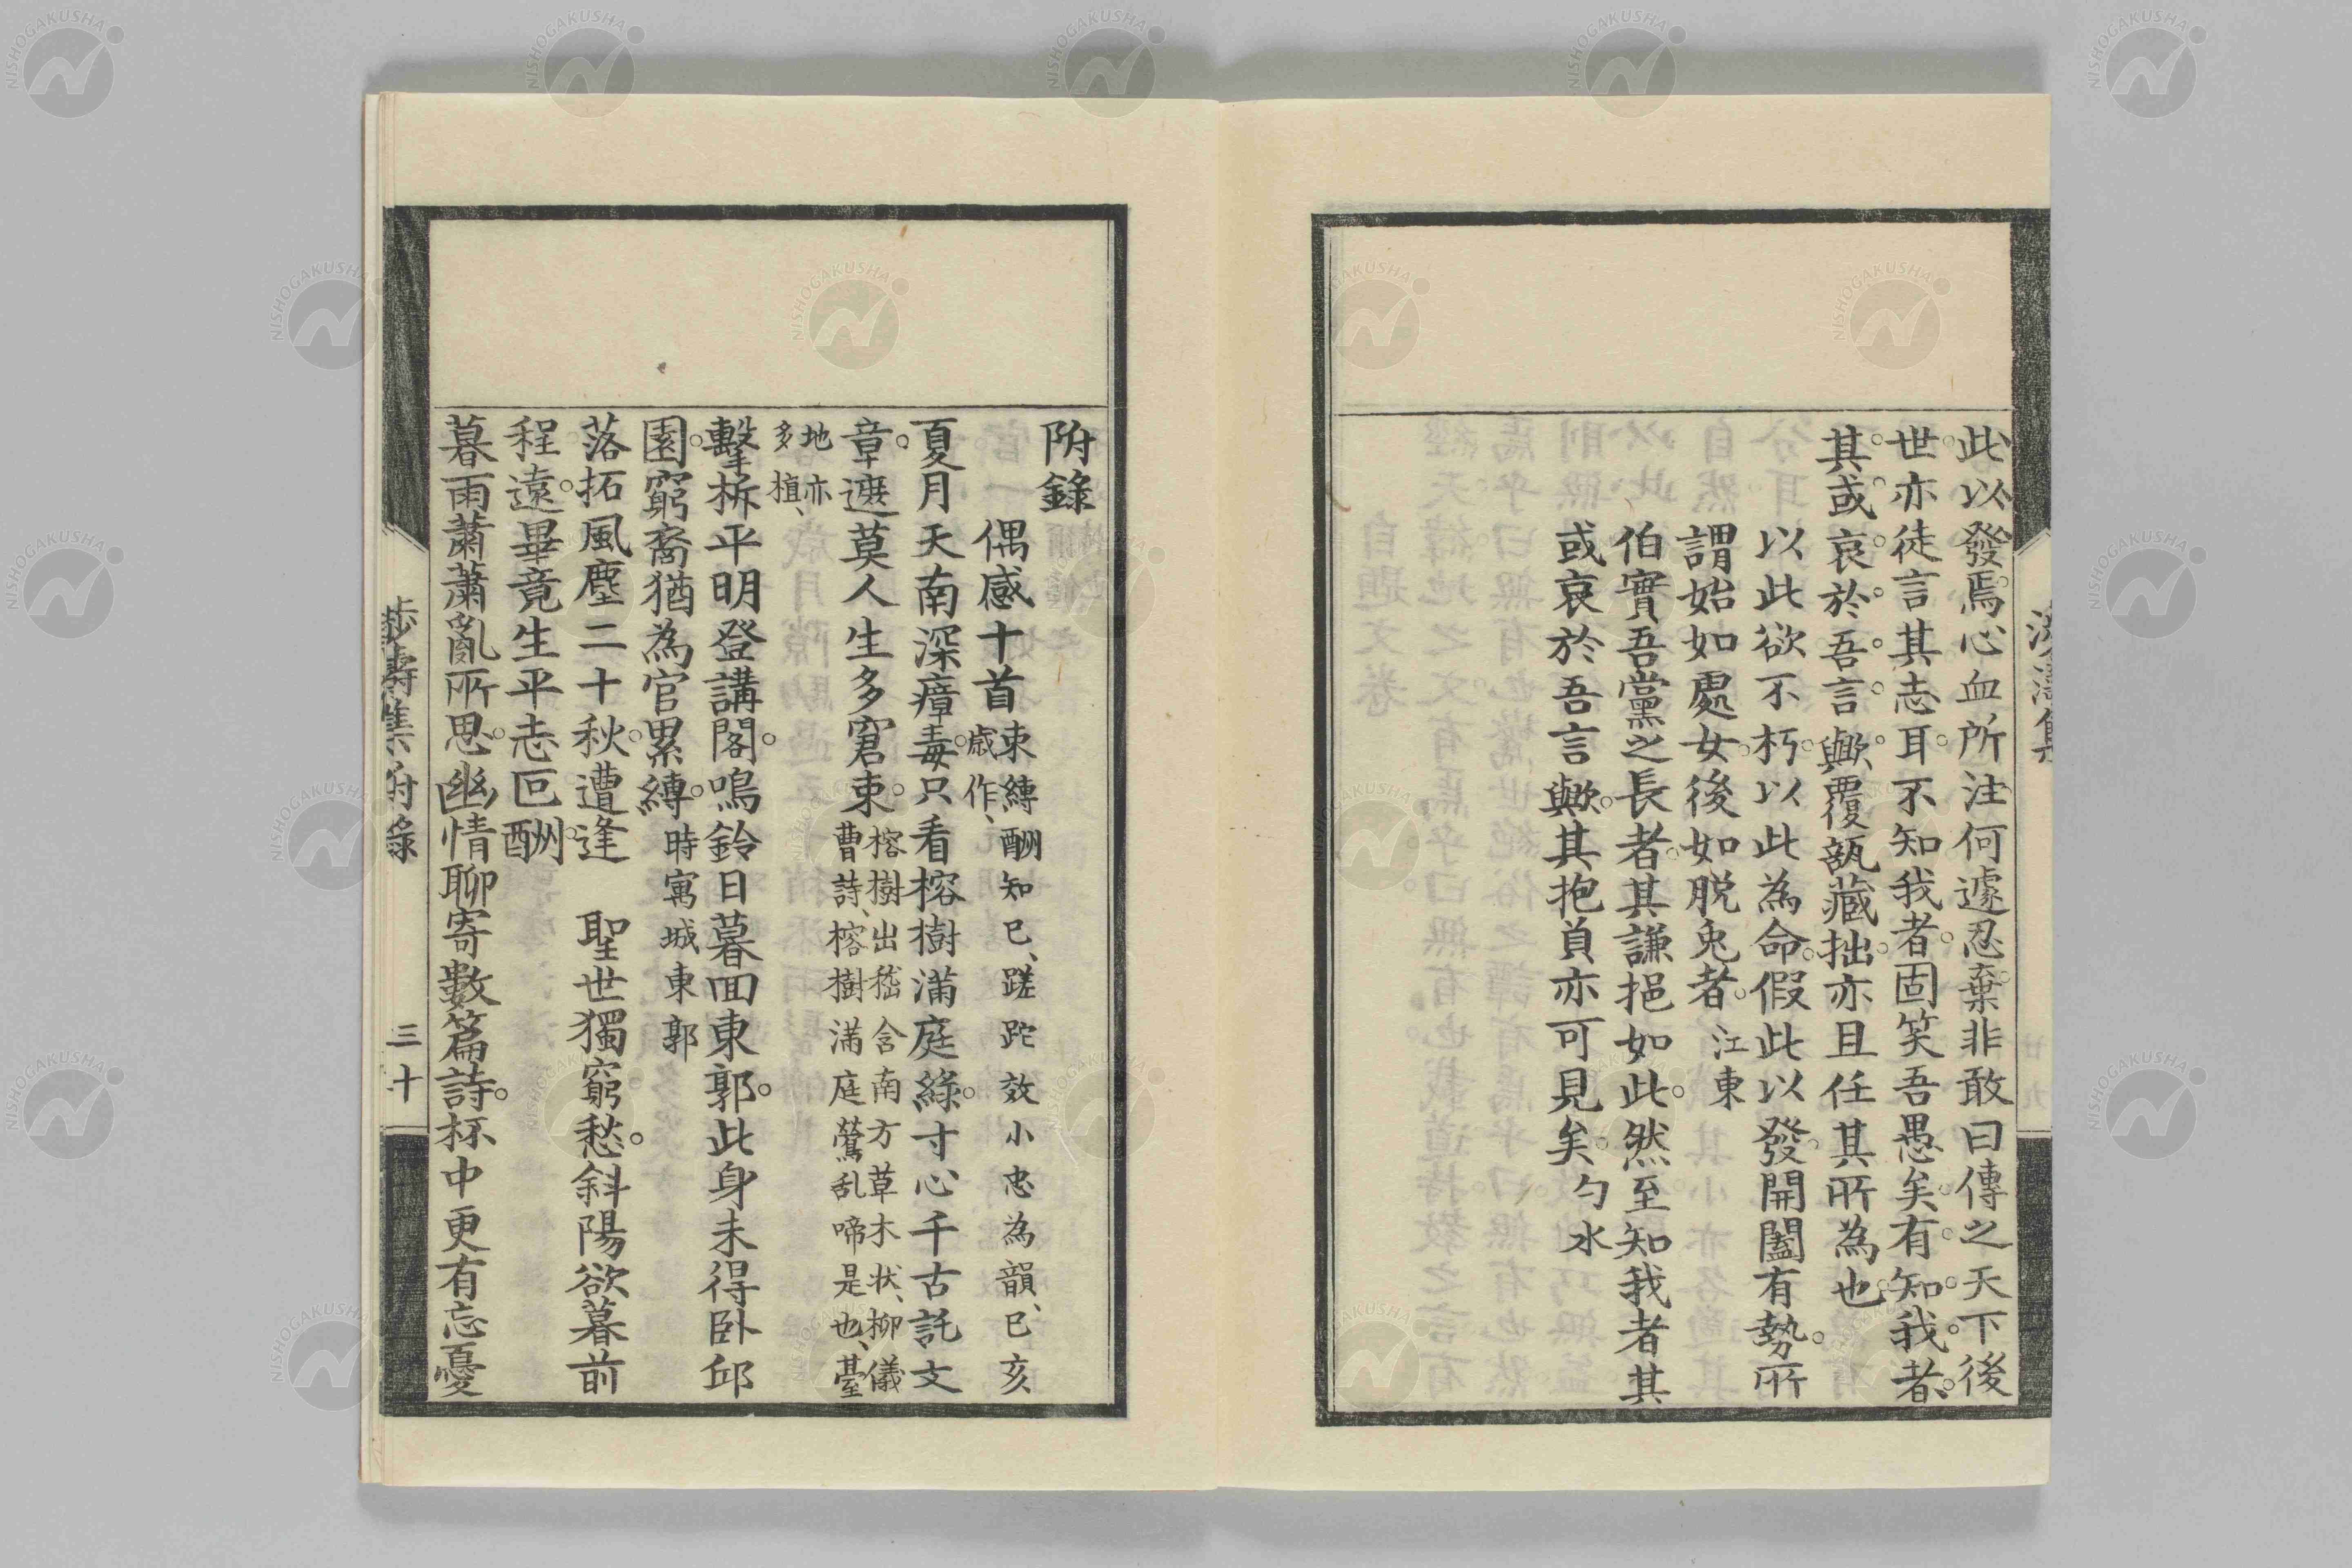 此以發焉。心血所注。何遽忍棄。非敢曰傳之天下後
世。亦徒言其志耳。不知我者。固笑吾愚矣。有知我者。
其或哀於吾言歟。覆瓿藏拙。亦且任其所為也。
以此欲不朽。以此為命。假此以發。開闔有勢。所
謂始如處女。後如脱兔者。江東
伯實吾黨之長者。其謙挹如此。然至知我者其
或哀於吾言歟。其抱負亦可見矣。勺水
附錄
偶感十首
束縛酬知已、蹉跎效小忠為韻、已亥
歳作、
夏月天南深瘴毒。只看榕樹滿庭綠。寸心千古託文
章。遮莫人生多窘束。
榕樹出嵇含南方草木状、柳儀
曹詩、榕樹滿庭鶯乱啼是也、臺
地亦
多植、
擊柝平明登講閣。鳴鈴日暮回東郭。此身未得卧邱
園。窮裔猶為官累縛。時寓城東郭
落拓風塵二十秋。遭逢 聖世獨窮愁。斜陽欲暮前
程遠。畢竟生平志叵酬。
暮雨蕭蕭亂所思。幽情聊寄數篇詩。杯中更有忘憂
集附錄
三十
NISHOGAKUSHA